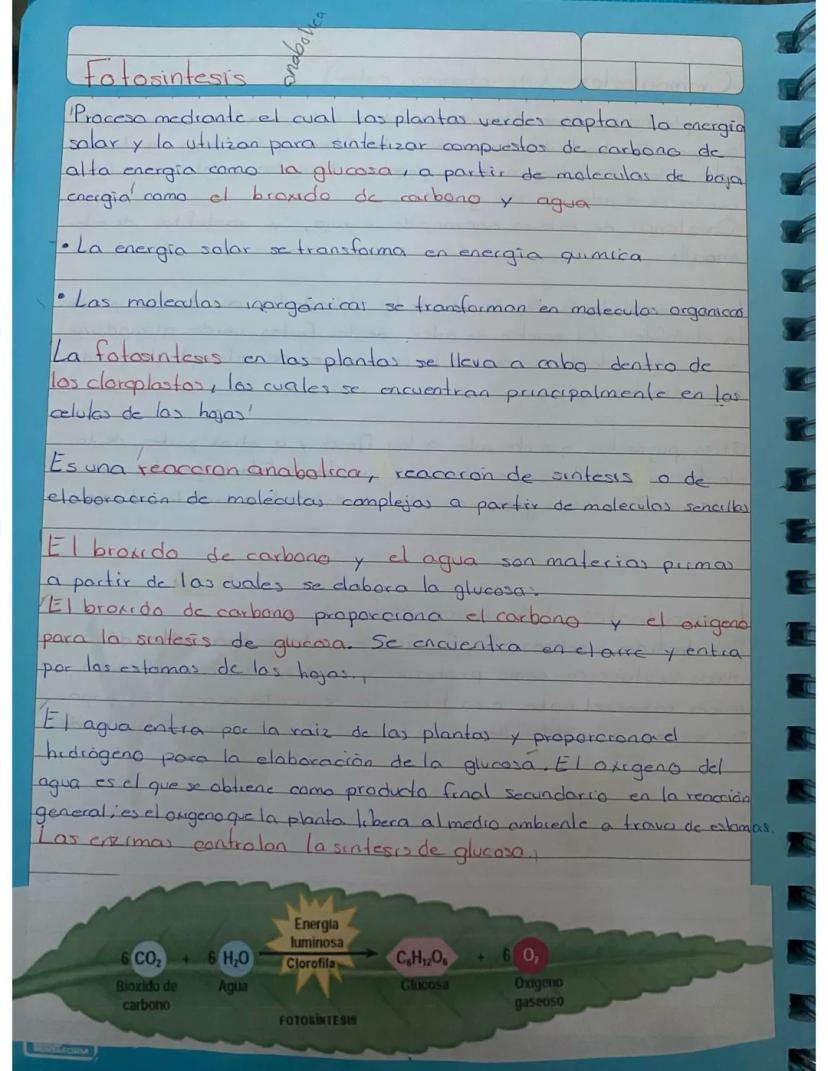 anabolica
Fotosintesis
Proceso mediante el cual las plantas verdes captan la energía
solar y la utilizan para sintetizar compuestos de carbono de
alta energía como la glucosa, a partir de moleculas de baja
energia como el bioxido de carbono y agua
• La energía solar se transforma en energia quimica
• Las moleculas inorgánicas se transforman en moleculas organicas
La fotosintesis en las plantas se lleva a cabo dentro de
los cloroplastos, los cuales se encuentran principalmente en las
celulas de las hojas
Es una reaccion anabolica, reacción de sintesis o de
elaboración de moléculas complejas a partir de moleculas sencillas
El bioxido de carbono y el agua son materias primas
a partir de las cuales se elabora la glucosa.
El bioxido de carbono proporciona el carbono y el oxigeno
para la sintesis de glucosa. Se encuentra en el aire y entra
por los estomas de las hojas.
El agua entra por la raiz de las plantas y proporciona el
hidrógeno para la elaboración de la glucosa. El oxigeno del
agua es el que se obtiene como producto final secundario en la reacción
general; es el oxigeno que la planta libera al medio ambiente a traves de estomas.
Las enzimas controlan la sintesis de glucosa.
Energía
luminosa
6 CO₂ + 6 H₂O Clorofila C₆H₁₂O₆ + 6 O₂
Bioxido de carbono Agua Glucosa Oxígeno gaseoso
FOTOSÍNTESIS